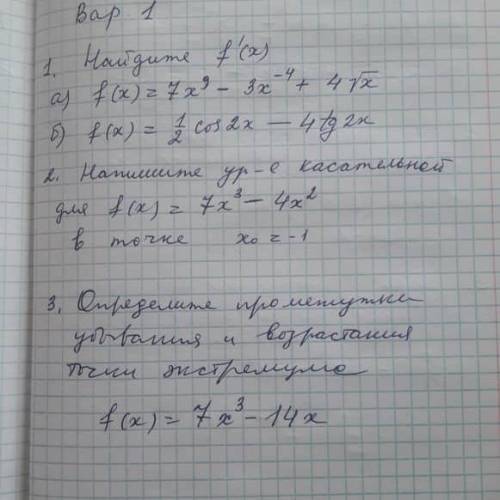 Вар. 1
1. Найдите f'(x)
а) f(x) = 7x⁹ − 3x⁻⁴ + 4√x
б) f(x) = 1/2 cos2x − 4tg2x
2. Напишите ур-е касательной
для f(x) = 7x³ − 4x²
в точке x₀ = −1
3. Определите промежутки
убывания и возрастания
точки экстремума
f(x) = 7x³ − 14x